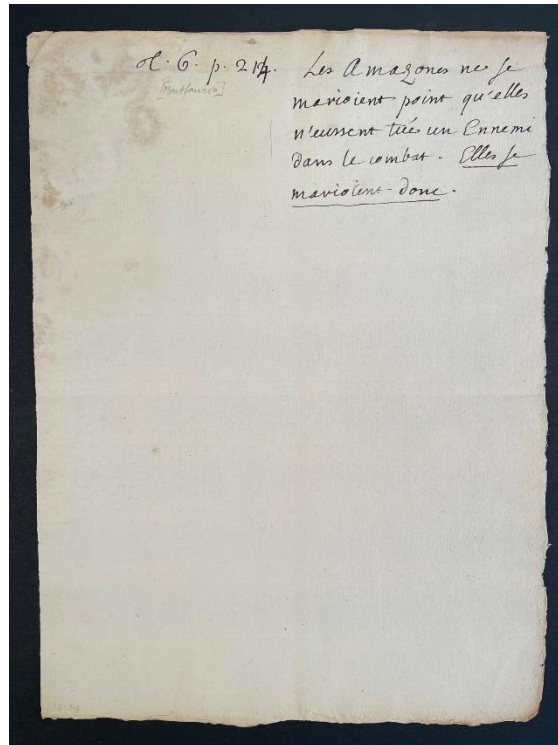 t. 6. p. 214.
[Montfaucon]
Les Amazones ne se
marioient point qu'elles
n'eussent tué un Ennemi
dans le combat. Elles se
marioient donc.